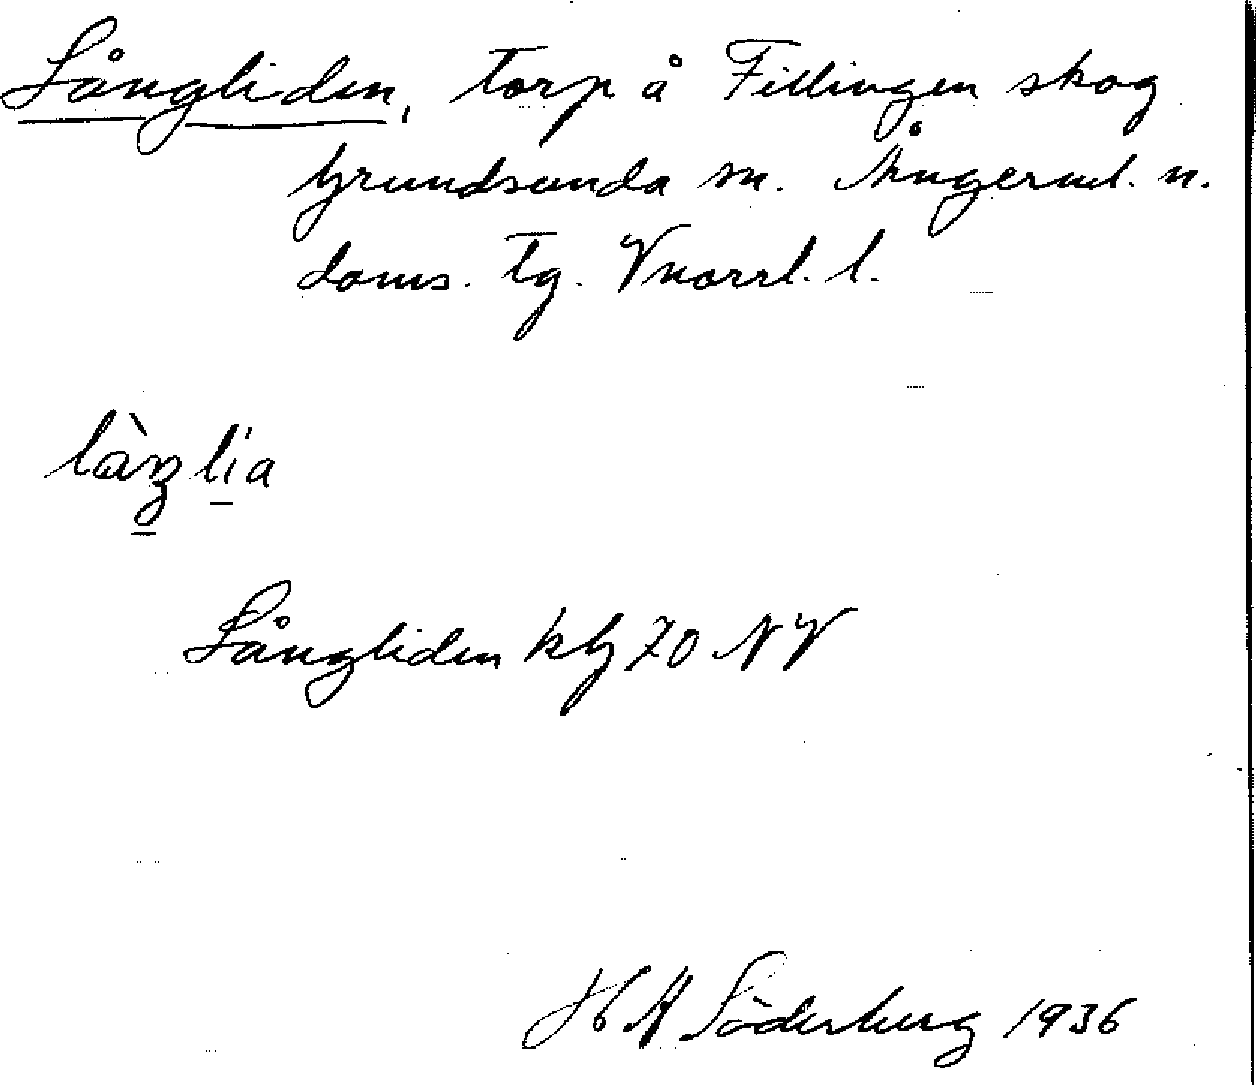 Långliden, torp å Fillingen skog
Grundsunda sn. Ångerml. n.
doms. Tg. Vnorrl. l.
làŋlia
Långliden kbl 70 NV
H A Söderberg 1936